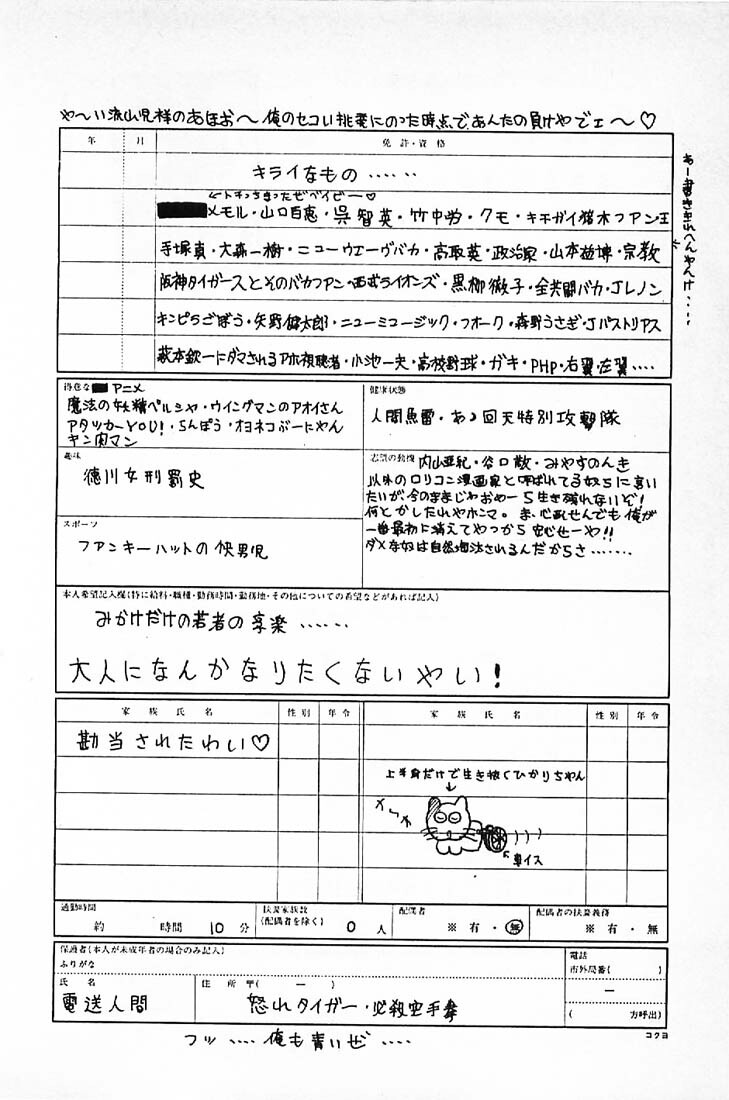 や〜い流山児様のあほお〜俺のセコい挑発にのった時点で、あんたの負けやでェ〜♡
年 月 免許・資格
キライなもの‥‥‥
メモル・山口百恵・呉智英・竹中労・クモ・キチガイ猪木ファン王
手塚眞・大森一樹・ニューウエーヴバカ・高取英・政治家・山本益博・宗教
阪神タイガースとそのバカファン・西武ライオンズ・黒柳徹子・全共闘バカ・Jレノン
キンピラごぼう・矢野健太郎・ニューミュージック・フオーク・森野うさぎ・Jパストリアス
萩本欽一にダマされるアホ視聴者・小池一夫・高校野球・ガキ・PHP・右翼・左翼‥‥
あー書ききれへんやんけ‥‥
得意な アニメ
魔法の妖精ペルシャ・ウイングマンのアオイさん
アタッカーYOU!・らんぽう・オヨネコぶーにゃん
キン肉マン
健康状態
人間魚雷・あゝ回天特別攻撃隊
趣味
徳川女刑罰史
志望の動機 内山亜紀・谷口敬・みやすのんき
以外のロリコン漫画家と呼ばれてる奴らに言い
たいが今のままじゃおめーら生き残れないぞ!
何とかしたれやホンマ。ま、心配せんでも俺が
一番最初に消えてやっから安心せーや!!
ダメな奴は自然淘汰されるんだからさ‥‥‥
スポーツ
ファンキーハットの快男児
本人希望記入欄(特に給料・職種・勤務時間・勤務地・その他についての希望などがあれば記入)
みかけだけの若者の享楽‥‥‥
大人になんかなりたくないやい!
家族氏名 性別 年令 家族氏名 性別 年令
勘当されたわい♡
上半身だけで生き抜くひかりちゃん
車イス
通勤時間
約 時間 10分
扶養家族数
(配偶者を除く) 0人
配偶者
※有・無
配偶者の扶養義務
※有・無
保護者(本人が未成年者の場合のみ記入)
ふりがな
氏名
電送人間
住所 〒( ー )
怒れタイガー・必殺空手拳
電話
市外局番( )
ー
( 方呼出)
コクヨ
フッ‥‥俺も青いぜ‥‥